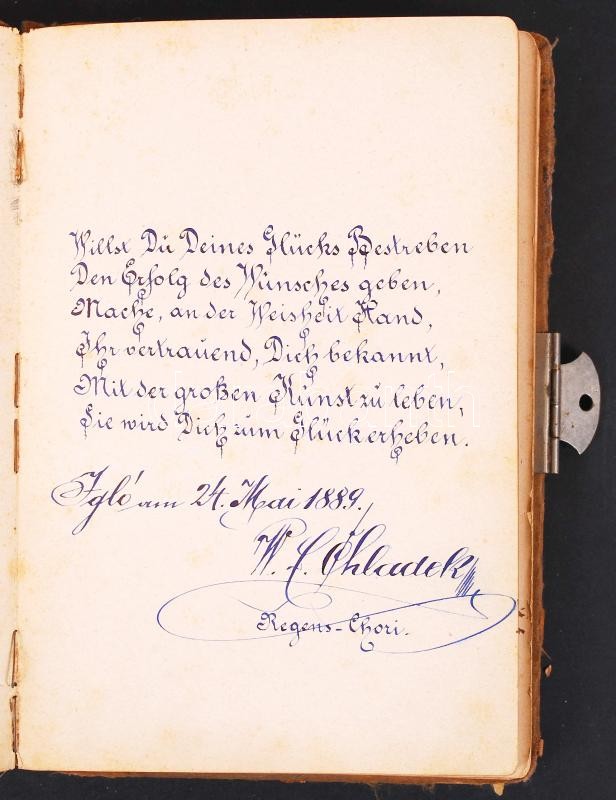 Willst Dū Deines Glücks Bestreben
Den Erfolg des Wūnsches geben,
Mache, an der Weisheit Hand,
Ihr vertrauend, Dich bekannt,
Mit der großen Kūnst zu leben,
Sie wird Dich zum Glück erheben.
Igló am 24. Mai 1889.
W. C. Chladek
Regens-Chori.